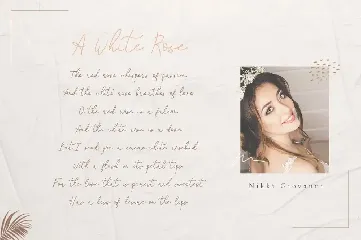 A White Rose
The red rose whispers of passion
And the white rose breathes of love
O the red rose is a falcon
And the white rose is a dove
But I send you a cream white rosebud
With a flush on its petal tips
For the love that is purest and sweetest
Has a kiss of desire on the lips